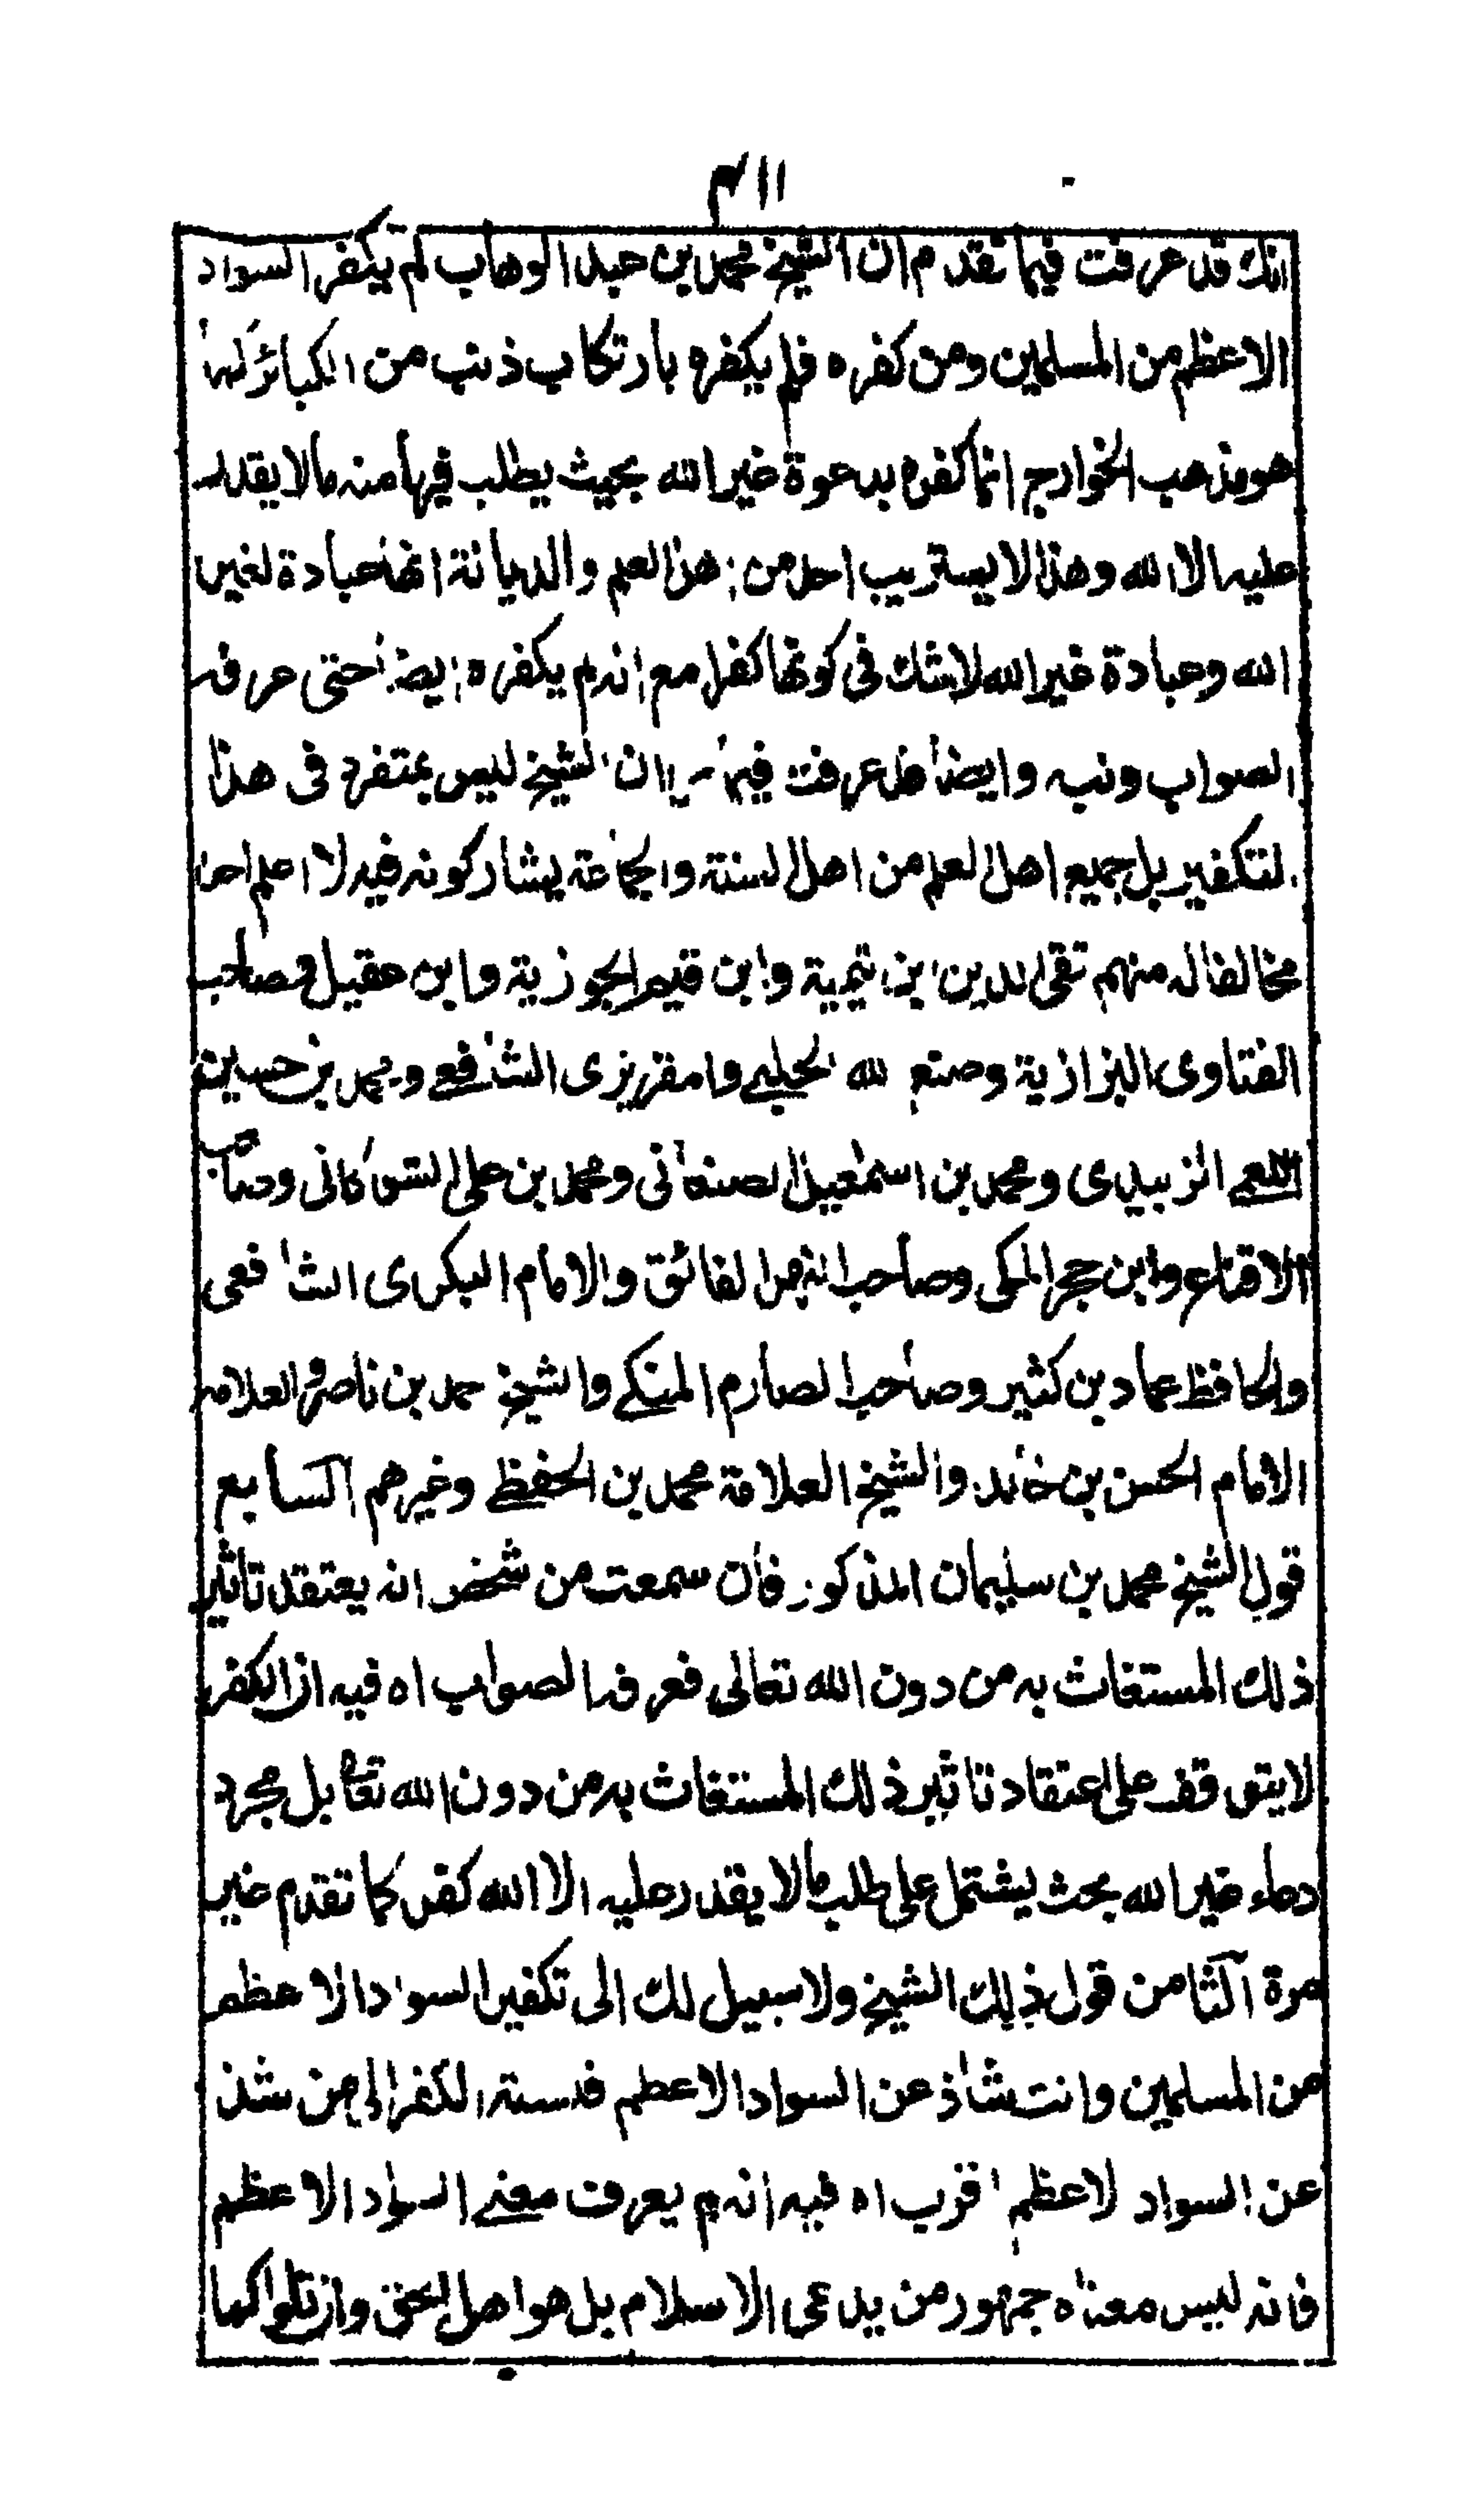 ٤١١
انك قد عرفت فيما تقدم ان الشيخ محمد بن عبد الوهاب لم يكفر السواد
الاعظم من المسلمين ومن كفره فلم يكفره بارتكاب ذنب من الكبائر كما
هو مذهب الخوارج انما كفره بدعوة غير الله بحيث يطلب فيها منه ما لا يقدر
عليه الا الله وهذا لا يستريب احد من اهل العلم والديانة انها عبادة لغير
الله وعبادة غير الله لا شك في كونها كفرا مع انه لم يكفره ايضا حتى عرفه
الصواب ونبه وايضا قد عرفت فيما مر ان الشيخ ليس بمتفرد فى هذا
التكفير بل جميع اهل العلم من اهل السنة والجماعة يشاركونه فيه لا اعلم احدا
مخالفا له منهم تقى الدين ابن تيمية وابن قيم الجوزية وابن عقيل وصاحب
الفتاوى البزازية وصنع الله الحلبي والمقريزى الشافعي ومحمد بن حسين
النعمي الزبيدى ومحمد بن اسمعيل الصنعانى ومحمد بن على الشوكانى وصاحب
الاقناع وابن حجر المكى وصاحب النهر الفائق والامام البكرى الشافعى
والحافظ عماد بن كثير وصاحب الصارم المنكي والشيخ حمد بن ناصر والعلامة
الامام الحسن بن خالد والشيخ العلامة محمد بن الحفظي وغيرهم السابع
قول الشيخ محمد بن سليمان المذكور فان سمعت من شخص انه يعتقد تاثير
ذلك المستغاث به من دون الله تعالى فعرفه الصواب اه فيه ان الكفر
لا يتوقف على اعتقاد تاثير ذلك المستغاث به من دون الله تعا بل مجرد
دعاء غير الله بحث يشتمل على طلب ما لا يقدر عليه الا الله كفر كما تقدم غير
مرة الثامن قول ذلك الشيخ ولا سبيل لك الى تكفير السواد الاعظم
من المسلمين وانت شاذ عن السواد الاعظم فنسبة الكفر الى من شذ
عن السواد الاعظم اقرب اه فيه انه لم يعرف معنے السواد الاعظم
فانه ليس معناه جمهور من يدعى الاسلام بل هو اهل الحق وان قلوا كما